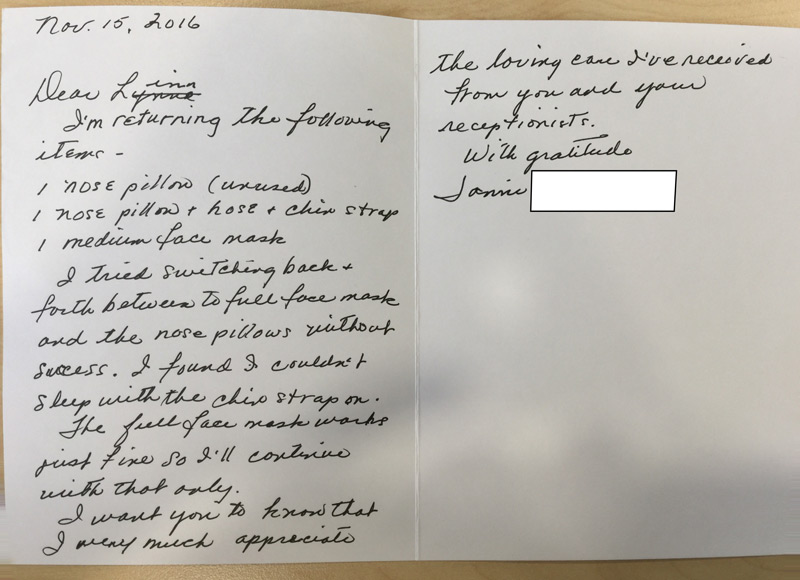 Nov. 15, 2016
Dear Lynne inn
I'm returning the following
items -
1 nose pillow (unused)
1 nose pillow + hose + chin strap
1 medium face mask
I tried switching back +
forth between to full face mask
and the nose pillows without
success. I found I couldn't
sleep with the chin strap on.
The full face mask works
just fine so I'll continue
with that only.
I want you to know that
I very much appreciate
the loving care I've received
from you and your
receptionists.
With gratitude